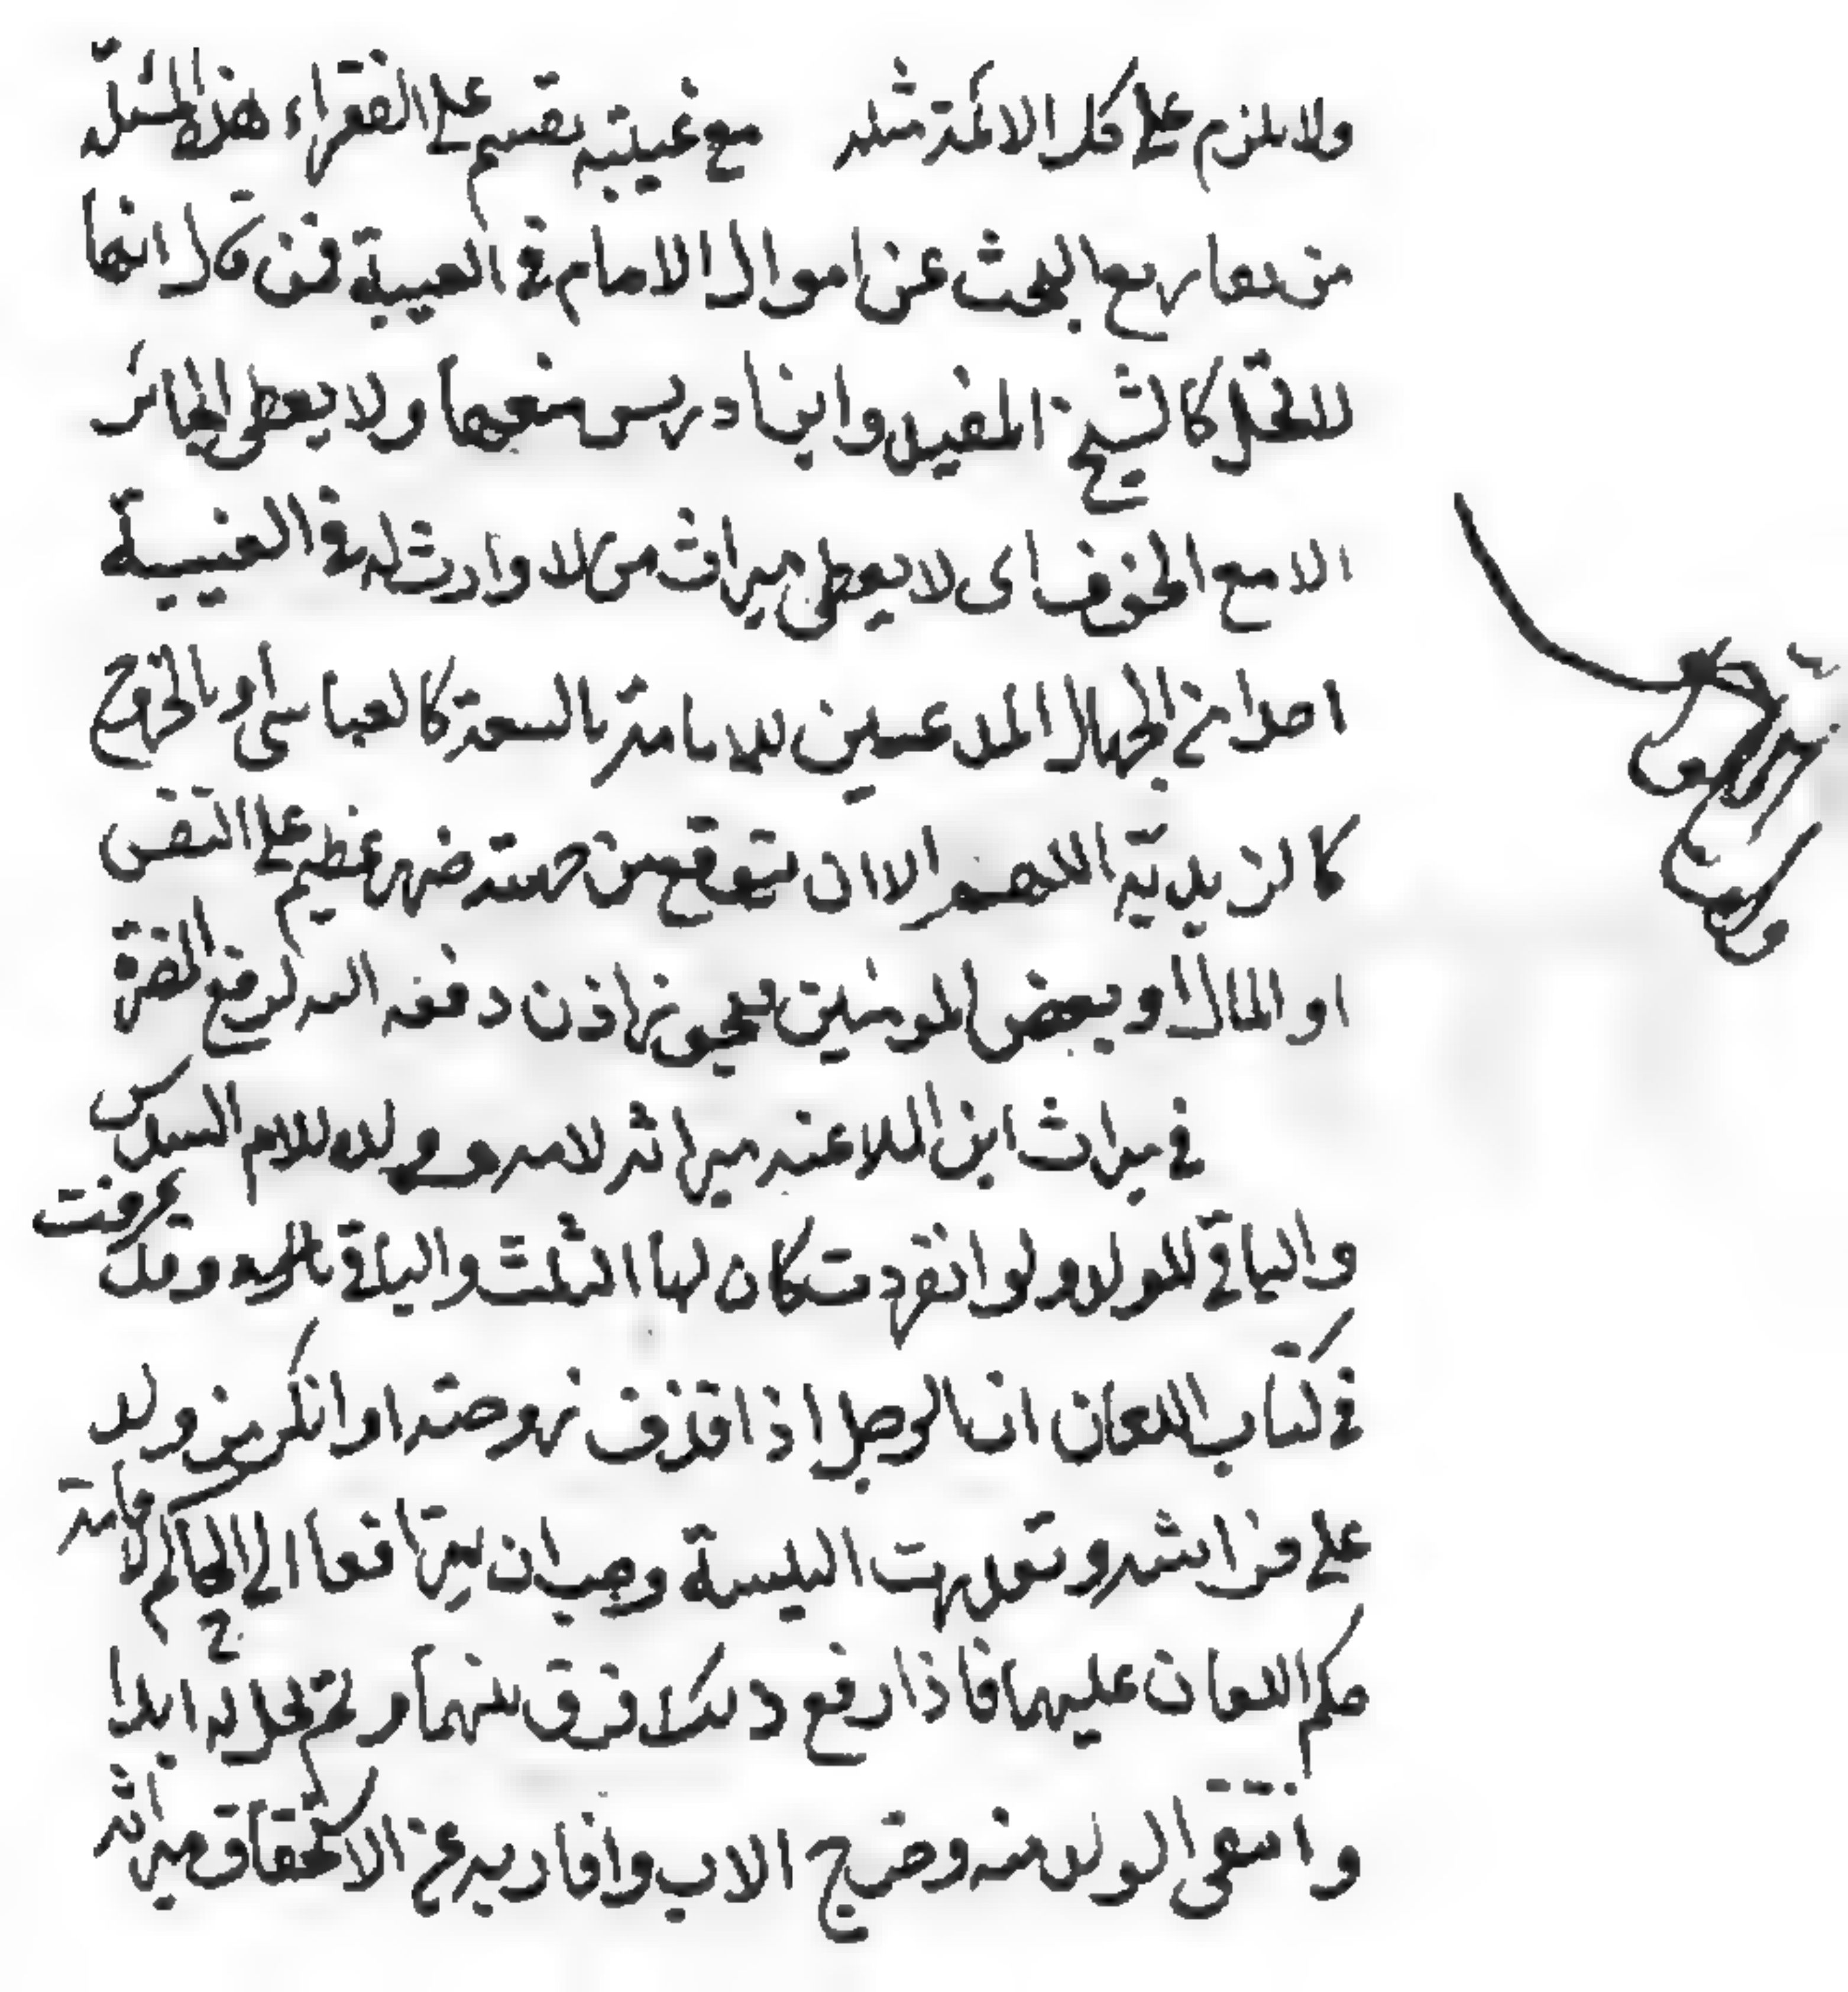 ولا يلزم على كل الائمة مثله مع غيبته يقسم على الفقراء هذه المسئلة
من تفاريع البحث عن اموال الامام في الغيبة فمن قال انها
للتحل كالشيخ المفيد وابن ادريس منعها ولا يعطى الجائر
الا مع الخوف اى لا يعطى ميراث من لا وارث له في الغيبة
احدا من الجهال المدعين للامامة بالسعة كالعباسى او بالخروج
كالزيدية اللهم الا ان يتوقع من جهته ضرر عظيم على النفس
او المال او بعض المومنين فيجوز اذن دفعه اليه لدفع المضرة
في ميراث ابن الملاعنة ميراثه لامه وولده للام السدس
والباقي للولد ولو انفردت كان لها الثلث والباقي بالرد وقد عرفت
في كتاب اللعان ان الرجل اذا قذف زوجته او انكر من ولد
على فراشه وتعذرت البينة وجب ان يترافعا الى الحاكم لاقامة
حكم اللعان عليهما فاذا رفع ذلك فرق بينهما ولم تحل له ابدا
وانتفى الولد منه وخرج الاب واقاربه عن الاستحقاق ميراثه